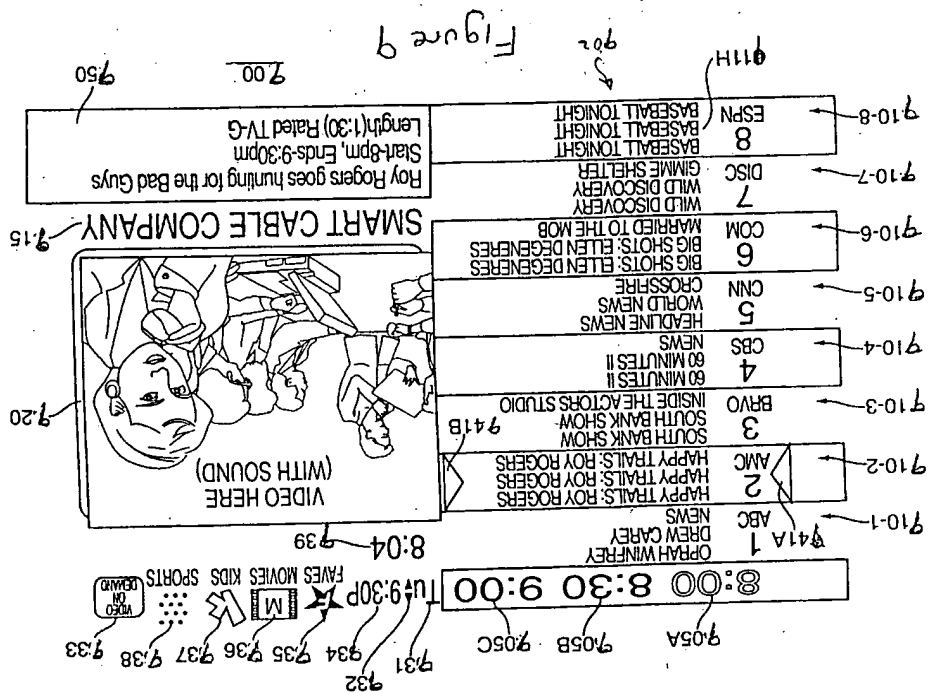 9.05A 9.05B 9.05C 9.31 9.32 9.34 9.35 9.36 9.37 9.38 9.33
8:00 8:30 9:00
Tu 9:30P
FAVES
M
MOVIES
KIDS
SPORTS
VIDEO
ON
DEMAND
8:04 9.39
9.10-1
1
ABC
OPRAH WINFREY
DREW CAREY
NEWS
941A
9.10-2
2
AMC
HAPPY TRAILS: ROY ROGERS
HAPPY TRAILS: ROY ROGERS
HAPPY TRAILS: ROY ROGERS
941B
9.10-3
3
BRVO
SOUTH BANK SHOW
SOUTH BANK SHOW
INSIDE THE ACTORS STUDIO
9.10-4
4
CBS
60 MINUTES II
60 MINUTES II
NEWS
9.10-5
5
CNN
HEADLINE NEWS
WORLD NEWS
CROSSFIRE
9.10-6
6
COM
BIG SHOTS: ELLEN DEGENERES
BIG SHOTS: ELLEN DEGENERES
MARRIED TO THE MOB
9.10-7
7
DISC
WILD DISCOVERY
WILD DISCOVERY
GIMME SHELTER
9.10-8
8
ESPN
BASEBALL TONIGHT
BASEBALL TONIGHT
BASEBALL TONIGHT
VIDEO HERE
(WITH SOUND)
9.20
SMART CABLE COMPANY
9.15
Roy Rogers goes hunting for the Bad Guys
Start-8pm, Ends-9:30pm
Length(1:30) Rated TV-G
911H
902
9.00
9.50
Figure 9